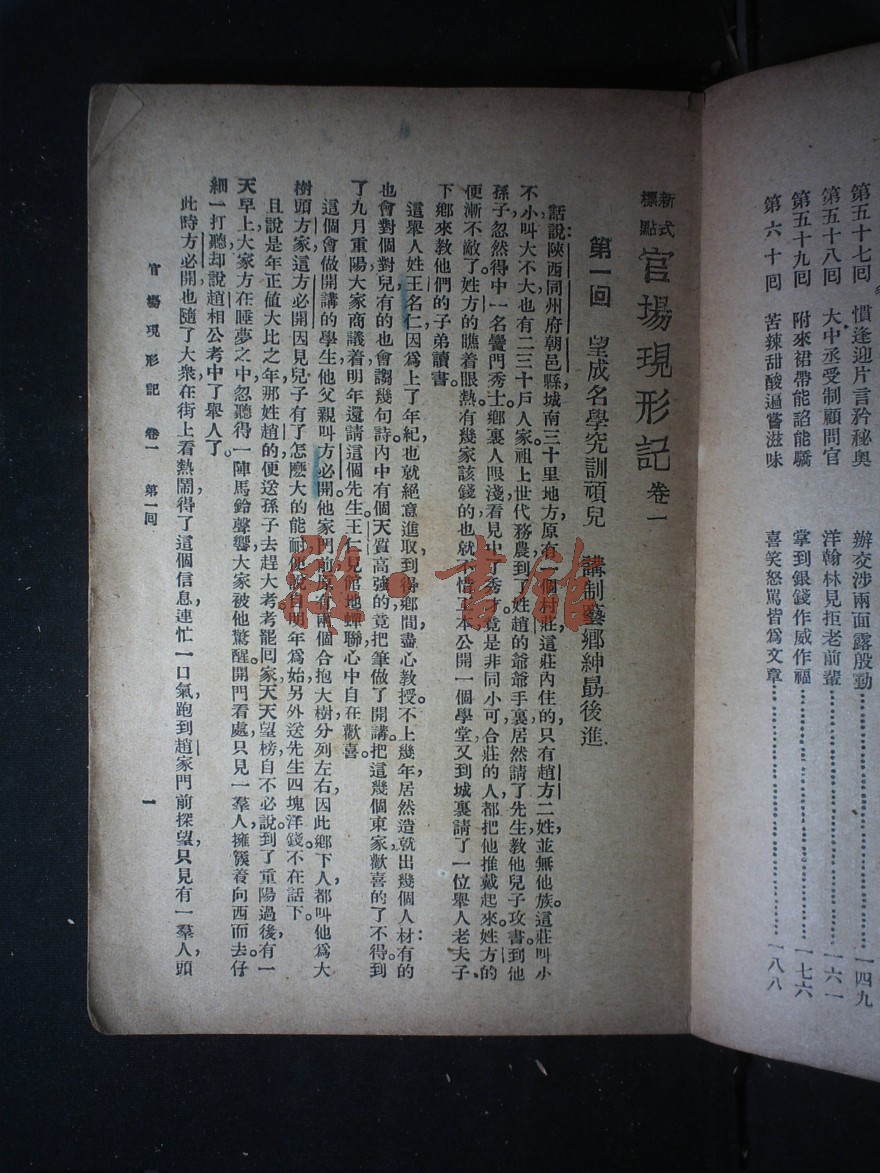 第五十七回　慣逢迎片言矜秘奥　辦交涉兩面露殷勤……一四九
第五十八回　大中丞受制顧問官　洋翰林見拒老前輩……一六一
第五十九回　附來裙帶能諂能驕　掌到銀錢作威作福……一七六
第六十回　苦辣甜酸遍嘗滋味　喜笑怒駡皆爲文章……一八八
新式標點　官場現形記　卷一
第一回　望成名學究訓頑兒　講制藝鄉紳勗後進
話說陝西同州府朝邑縣，城南三十里地方，原有一個村莊；這莊內住的，只有趙方二姓，並無他族。這莊叫小
不小，叫大不大，也有二三十戶人家，祖上世代務農。到了姓趙的爺爺手裏，居然請了先生，教他兒子攻書；到他
孫子，忽然得中一名黌門秀士，鄉裏人眼淺，看見中了秀才，竟是非同小可，合莊的人，都把他推戴起來；姓方的
便漸漸不敵了。姓方的瞧着眼熱，有幾家該錢的，也就不惜工本，公開一個學堂，又到城裏請了一位舉人老夫子，
下鄉來教他們的子弟讀書。
這舉人姓王名仁，因爲上了年紀，也就絕意進取，到得鄉間，盡心教授。不上幾年，居然造就出幾個人材：有的
也會對個對兒，有的也會謅幾句詩，內中有個天質高強的，竟把筆做了開講。把這幾個東家歡喜的了不得。到
了九月重陽，大家商議着，明年還請這個先生。王仁見館地蟬聯，心中自在歡喜。
這個會做開講的學生，他父親叫方必開。他家門前，原有兩個合抱大樹，分列左右，因此鄉下人都叫他爲大
樹頭方家。這方必開因見兒子有了怎麽大的能耐，便說自明年爲始，另外送先生四塊洋錢。不在話下。
且說是年正值大比之年，那姓趙的便送孫子去趕大考。考罷回家，天天望榜，自不必說。到了重陽過後，有一
天早上，大家方在睡夢之中，忽聽得一陣馬鈴聲響，大家被他驚醒，開門看處，只見一羣人擁簇着向西而去。仔
細一打聽，却說趙相公考中了舉人了。
此時方必開也隨了大衆，在街上看熱鬧，得了這個信息，連忙一口氣跑到趙家門前探望。只見有一羣人，頭
官場現形記　卷一　第一回　一
雜·書館